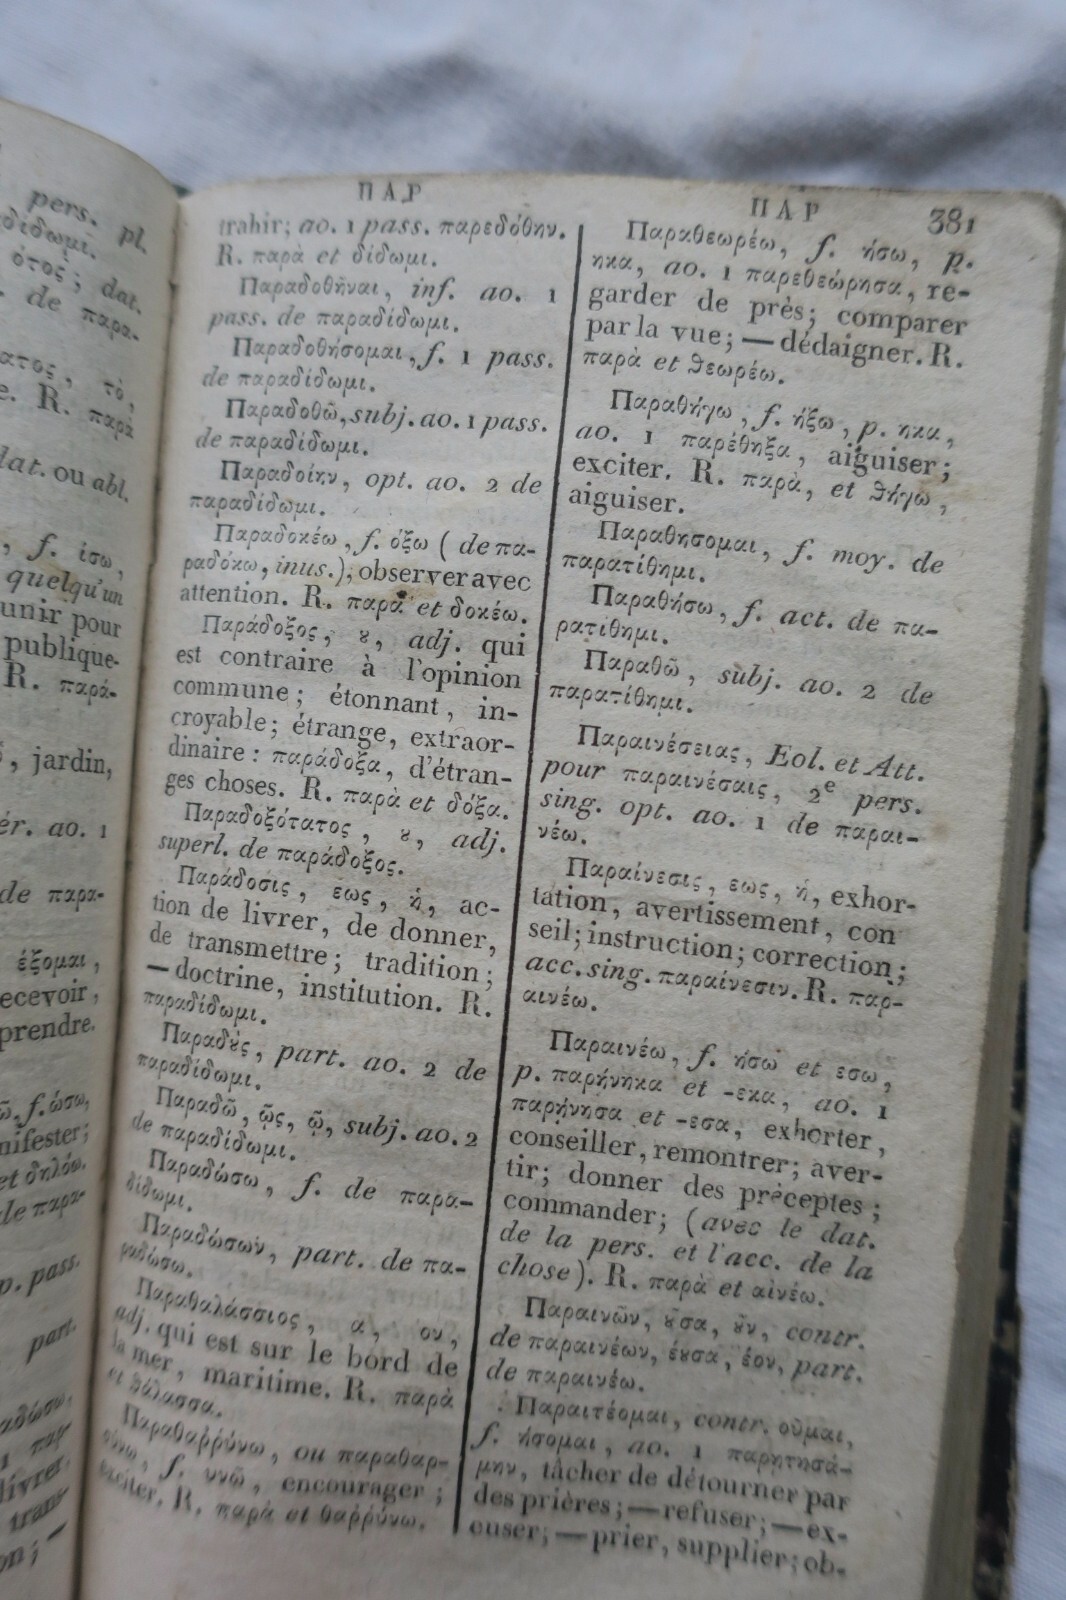 pers. pl.
δίδωμι.
ότος; dat.
de παρα-
ατος, τὸ,
e. R. παρὰ
dat. ou abl.
, f. ίσω,
quelqu'un
unir pour
publique-
R. παρά-
, jardin,
ér. ao. 1
de παρα-
έξομαι,
ecevoir,
prendre.
ῶ, f. ώσω,
nifester;
et δηλόω.
de παρα-
p. pass.
part.
αδώσω,
livrer,
trans-
on; —
ΠΑΡ
trahir; ao. 1 pass. παρεδόθην.
R. παρὰ et δίδωμι.
Παραδοθῆναι, inf. ao. 1
pass. de παραδίδωμι.
Παραδοθήσομαι, f. 1 pass.
de παραδίδωμι.
Παραδοθῶ, subj. ao. 1 pass.
de παραδίδωμι.
Παραδοίην, opt. ao. 2 de
παραδίδωμι.
Παραδοκέω, f. όξω (de πα-
ραδόκω, inus.), observer avec
attention. R. παρὰ et δοκέω.
Παράδοξος, ȣ, adj. qui
est contraire à l'opinion
commune; étonnant, in-
croyable; étrange, extraor-
dinaire: παράδοξα, d'étran-
ges choses. R. παρὰ et δόξα.
Παραδοξότατος, ȣ, adj.
superl. de παράδοξος.
Παράδοσις, εως, ἡ, ac-
tion de livrer, de donner,
de transmettre; tradition;
— doctrine, institution. R.
παραδίδωμι.
Παραδȣ̀ς, part. ao. 2 de
παραδίδωμι.
Παραδῶ, ῷς, ῷ, subj. ao. 2
de παραδίδωμι.
Παραδώσω, f. de παρα-
δίδωμι.
Παραδώσων, part. de πα-
ραδώσω.
Παραθαλάσσιος, α, ον,
adj. qui est sur le bord de
la mer, maritime. R. παρὰ
et θάλασσα.
Παραθαῤῥύνω, ου παραθαρ-
σύνω, f. υνῶ, encourager;
exciter. R. παρὰ et θαῤῥύνω.
ΠΑΡ 381
Παραθεωρέω, f. ήσω, p.
ηκα, ao. 1 παρεθεώρησα, re-
garder de près; comparer
par la vue; — dédaigner. R.
παρὰ et θεωρέω.
Παραθήγω, f. ήξω, p. ηκα,
ao. 1 παρέθηξα, aiguiser;
exciter. R. παρὰ, et θήγω,
aiguiser.
Παραθησομαι, f. moy. de
παρατίθημι.
Παραθήσω, f. act. de πα-
ρατίθημι.
Παραθῶ, subj. ao. 2 de
παρατίθημι.
Παραινέσειας, Eol. et Att.
pour παραινέσαις, 2e pers.
sing. opt. ao. 1 de παραι-
νέω.
Παραίνεσις, εως, ἡ, exhor-
tation, avertissement, con
seil; instruction; correction;
acc. sing. παραίνεσιν. R. παρ-
αινέω.
Παραινέω, f. ήσω et εσω,
p. παρήνηκα et -εκα, ao. 1
παρήνησα et -εσα, exhorter,
conseiller, remontrer; aver-
tir; donner des préceptes;
commander; (avec le dat.
de la pers. et l'acc. de la
chose). R. παρὰ et αἰνέω.
Παραινῶν, ȣ͂σα, ȣ͂ν, contr.
de παραινέων, έȣσα, έον, part.
de παραινέω.
Παραιτέομαι, contr. οῦμαι,
f. ήσομαι, ao. 1 παρητησά-
μην, tâcher de détourner par
des prières; — refuser; — ex-
cuser; — prier, supplier; ob-